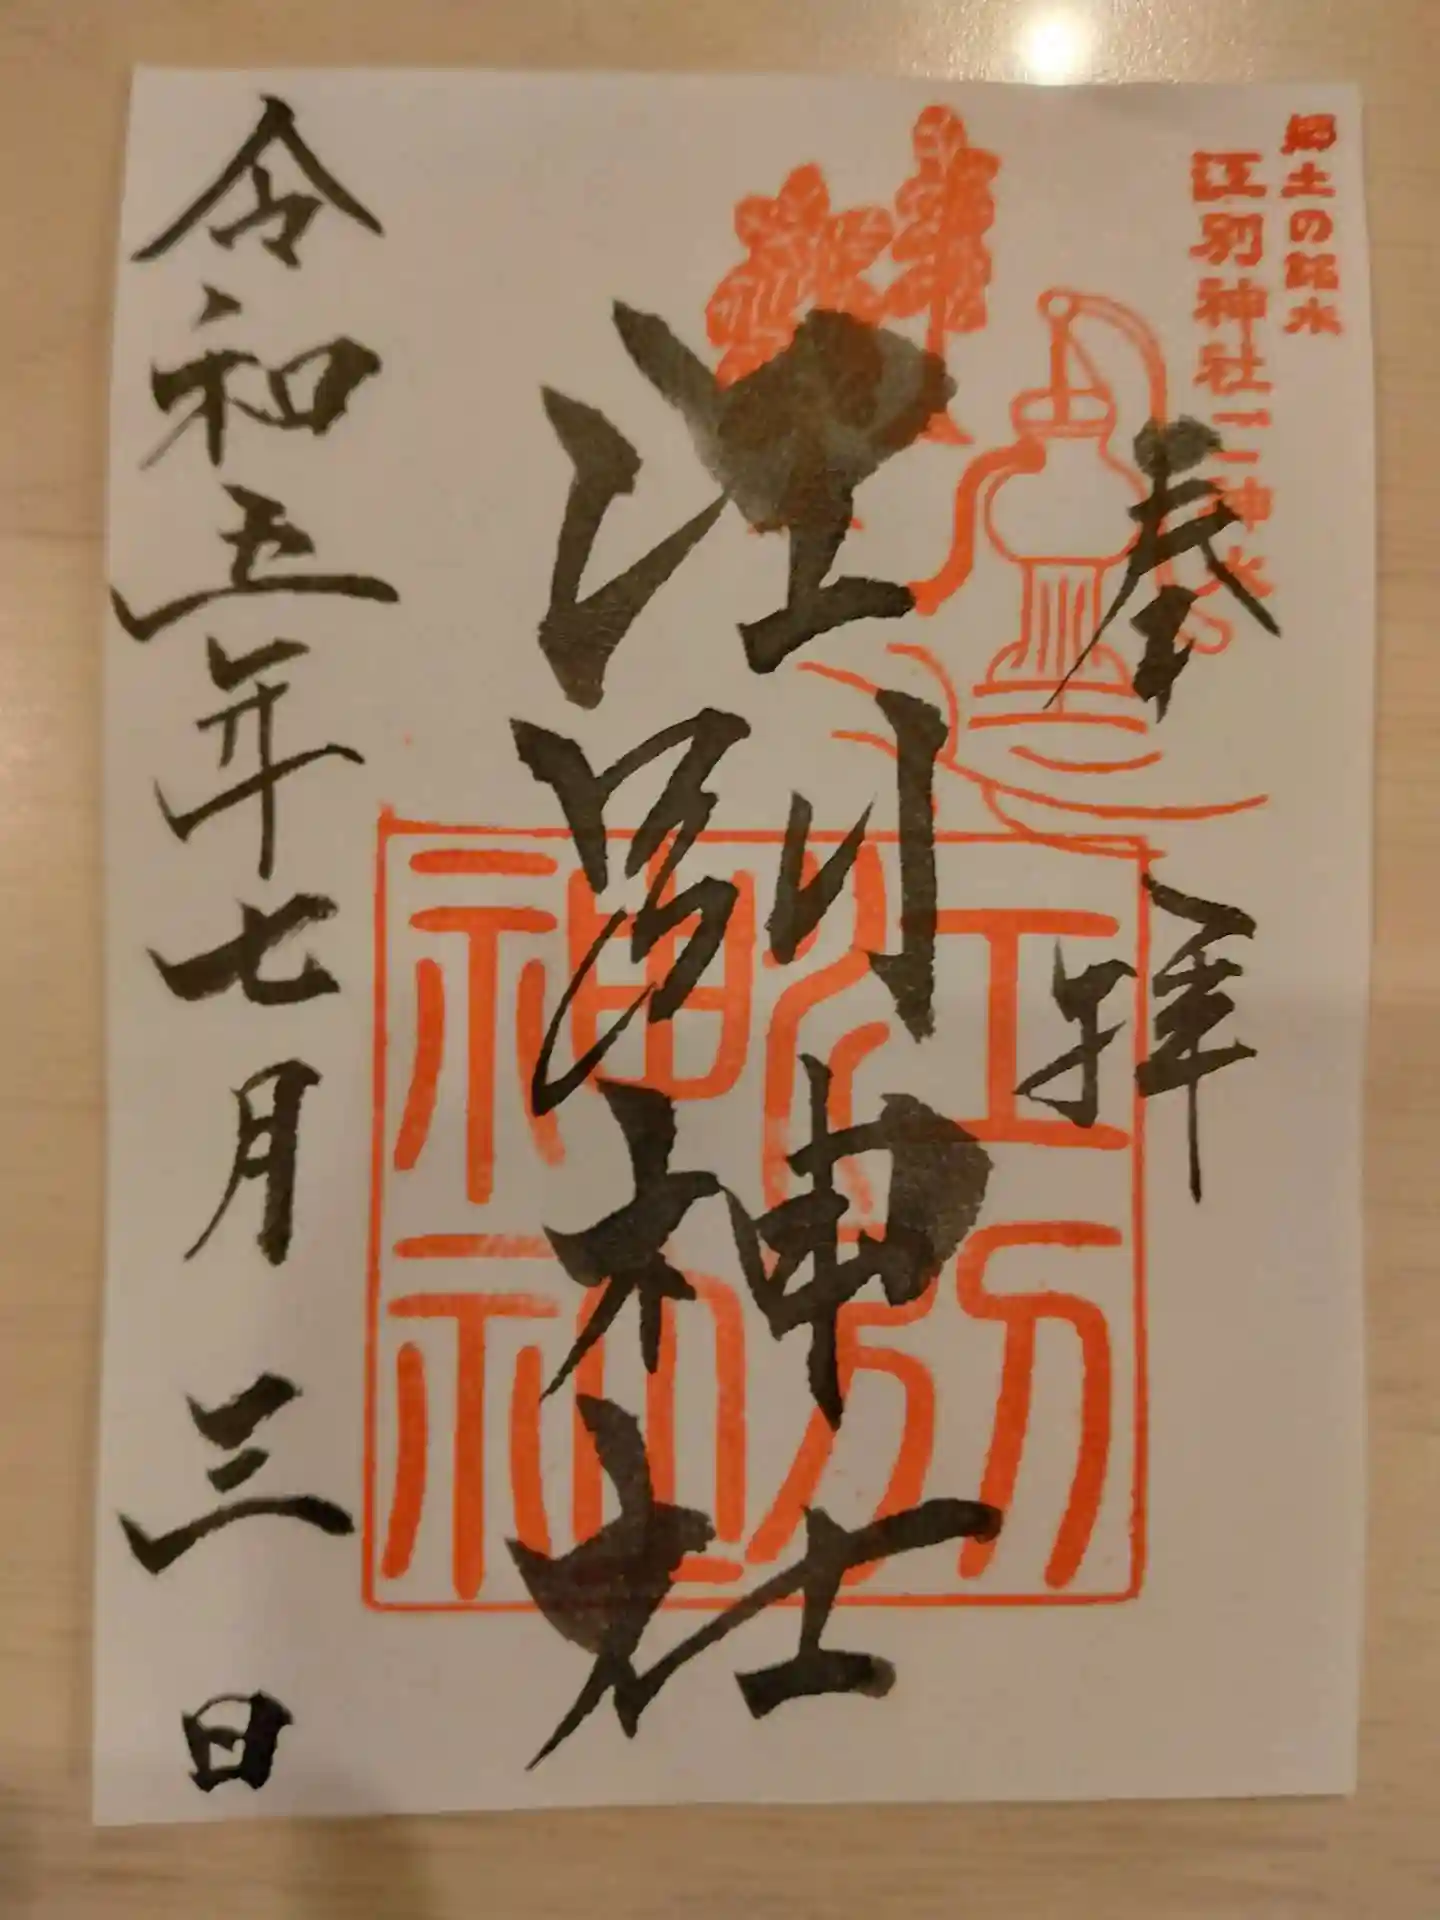 郷土の銘水
江別神社 御神水
奉拝
江別神社
江別神社
令和五年七月三日